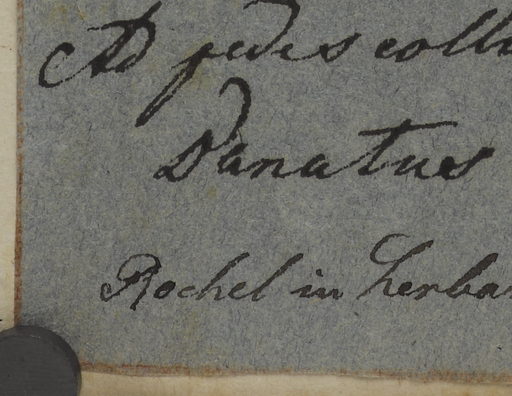 Ad pedes coll
Banatus
Rochel in herba